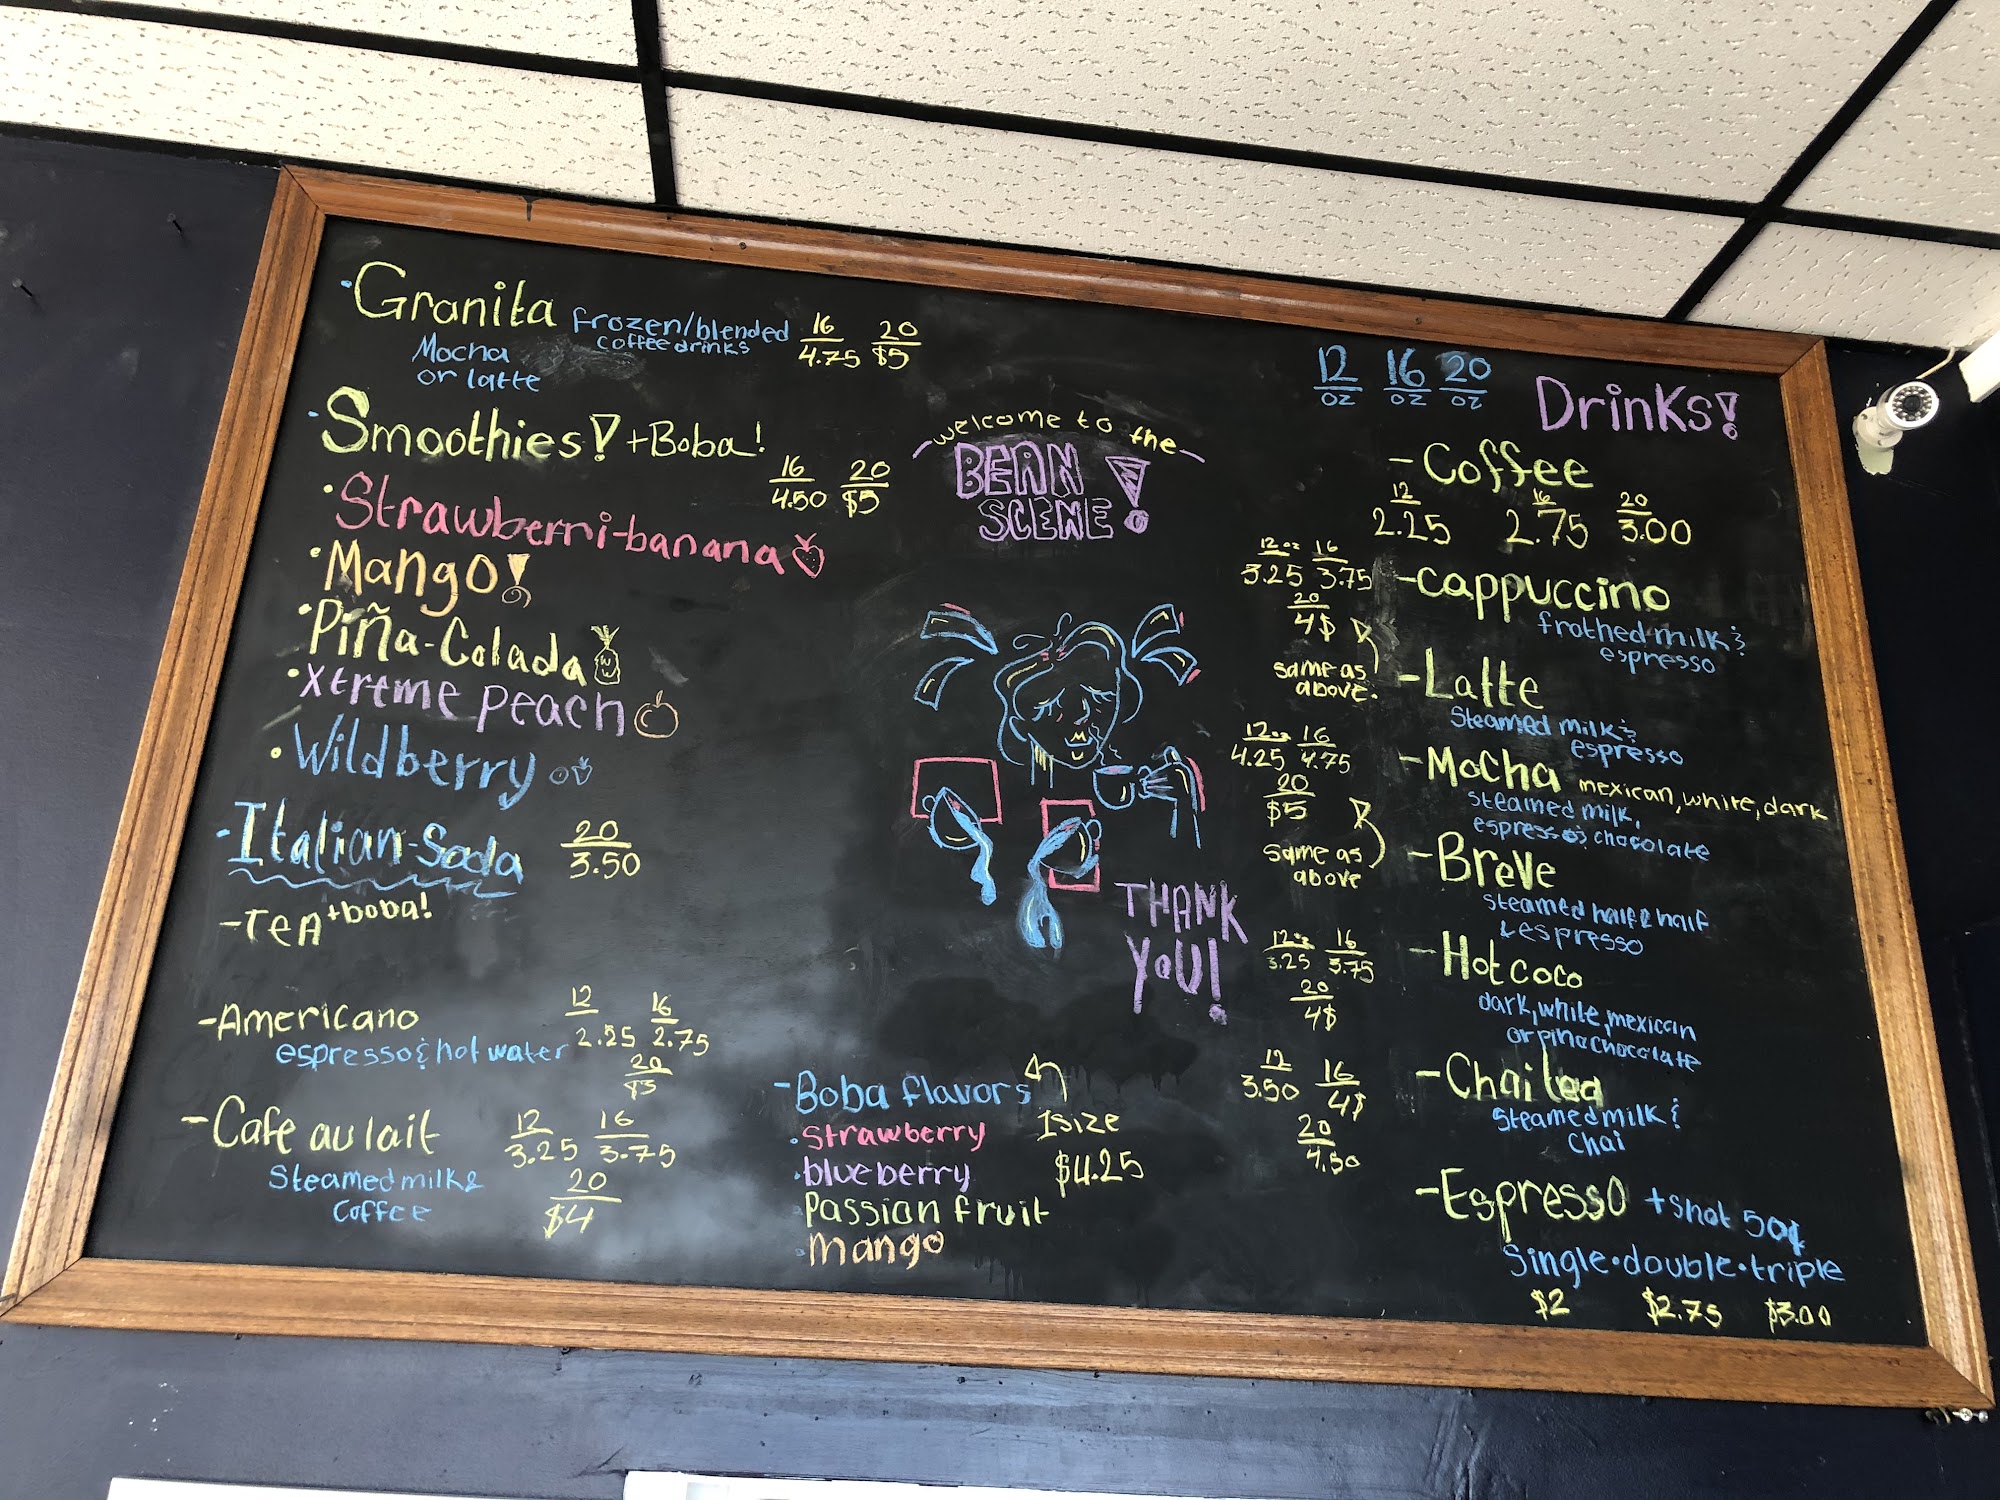 ·Granita frozen/blended
coffee drinks
16 20
4.75 $5
Mocha
or latte
·Smoothies! +Boba!
16 20
4.50 $5
·Strawberri-banana
·Mango!
·Piña-Colada
·Xtreme peach
·Wildberry
-Italian-Soda
20
3.50
-Tea +boba!
-Americano
espresso & hot water
12 16
2.25 2.75
20
$3
-Cafe au lait
Steamed milk &
coffee
12 16
3.25 3.75
20
$4
welcome to the
BEAN
SCENE!
THANK
YOU!
-Boba flavors
·strawberry
·blueberry
Passion fruit
·mango
1 size
$4.25
12 16 20
oz oz oz
Drinks!
-Coffee
12 16 20
2.25 2.75 3.00
-cappuccino
frothed milk &
espresso
12oz 16
3.25 3.75
20
4$
-Latte
Steamed milk &
espresso
same as
above.
-Mocha mexican, white, dark
steamed milk,
espresso & chocolate
12oz 16
4.25 4.75
20
$5
-Breve
steamed half & half
& espresso
same as
above
-Hot coco
dark, white, mexican
or pina chocolate
12oz 16
3.25 3.75
20
4$
-Chai tea
steamed milk &
chai
12 16
3.50 4$
20
4.50
-Espresso +shot 50¢
single·double·triple
$2 $2.75 $3.00